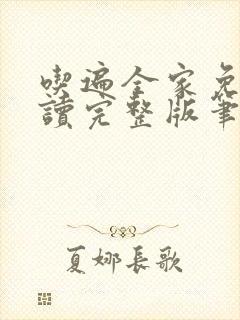 喫遍全家免
讀完整版筆
夏娜長歌